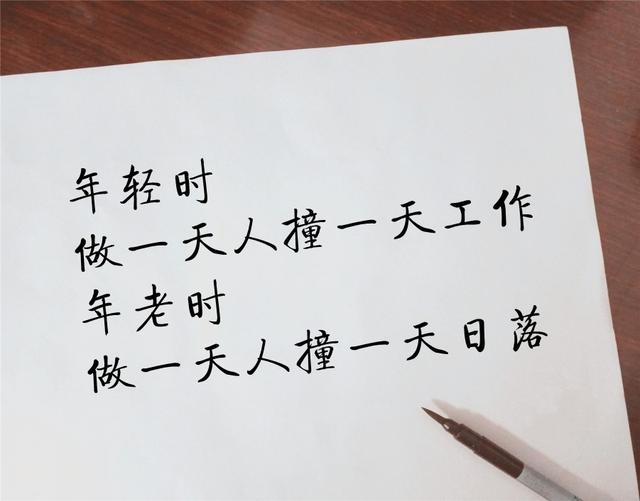 年轻时
做一天人撞一天工作
年老时
做一天人撞一天日落